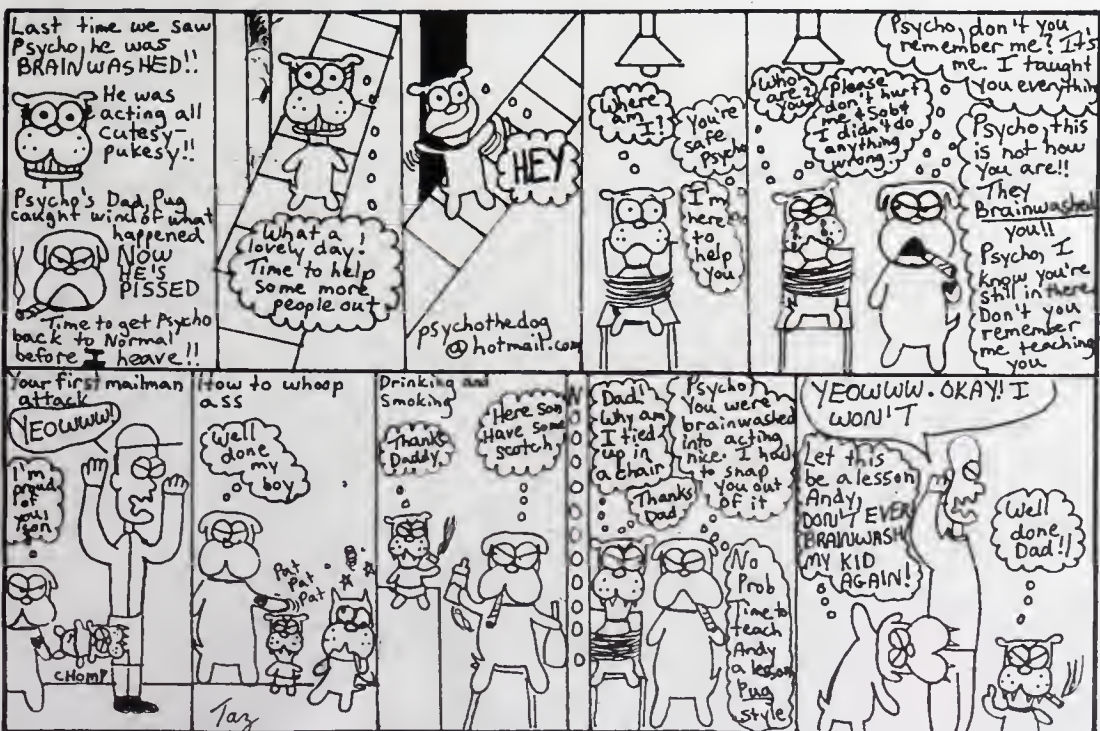 Last time we saw
Psycho, he was
BRAINWASHED!!
He was
acting all
cutesy-
pukesy!!
Psycho's Dad, Pug
caught wind of what
happened
NOW
HE'S
PISSED
Time to get Psycho
back to Normal
before I heave!!
What a
lovely day!
Time to help
some more
people out
HEY
psychothedog
@hotmail.com
Where
am
I?
You're
safe
Psycho
I'm
here
to
help
you
Who
are
you?
Please
don't hurt
me *Sob*
I didn't do
anything
wrong.
Psycho, don't you
remember me? It's
me. I taught
you everything
Psycho, this
is not how
you are!!
They
Brainwashed
you!!
Psycho, I
know you're
still in there
Don't you
remember
me teaching
you
Your first mailman
attack
YEOWWW!
I'm
proud
of
you!
son
CHOMP
How to whoop
ass
Well
done
my
boy
Pat
Pat
Pat
Taz
Drinking and
Smoking
Thanks
Daddy
Here son
Have some
scotch
NOOOOOOOOO
Dad!
Why am
I tied
up in
a chair
Thanks
Dad
Psycho,
You were
brainwashed
into acting
nice. I had
to snap
you out
of it
No
Prob
Time to
teach
Andy
a lesson
Pug
style
YEOWWW. OKAY! I
WON'T
Let this
be a lesson
Andy,
DON'T EVER
BRAINWASH
MY KID
AGAIN!
Well
done
Dad!!